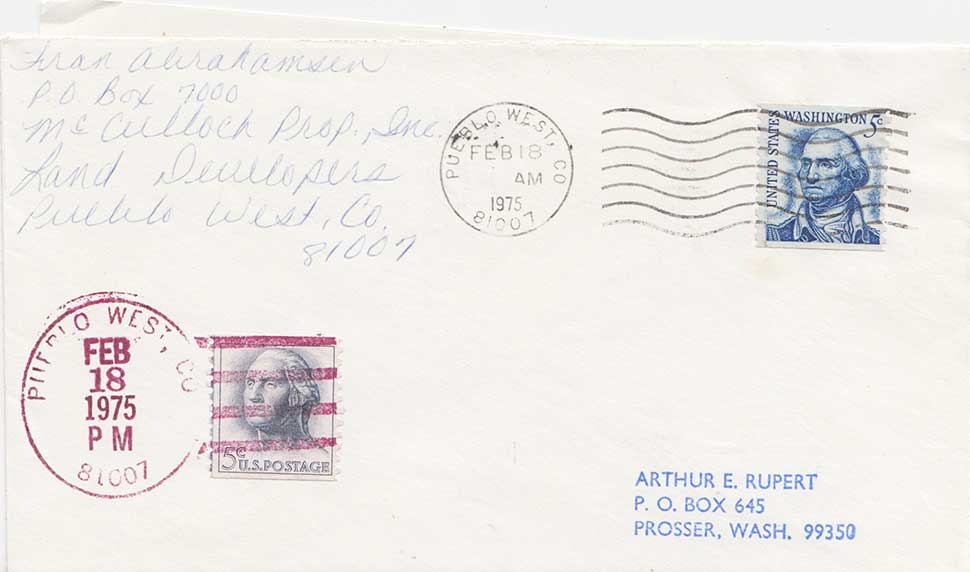 Fran Abrahamsen
P.O. Box 7000
McCulloch Prop. Inc.
Land Developers
Pueblo West, Co.
81007
PUEBLO WEST, CO
FEB 18
AM
1975
81007
UNITED STATES
WASHINGTON 5c
PUEBLO WEST, CO
FEB
18
1975
PM
81007
5c
U.S. POSTAGE
ARTHUR E. RUPERT
P. O. BOX 645
PROSSER, WASH. 99350